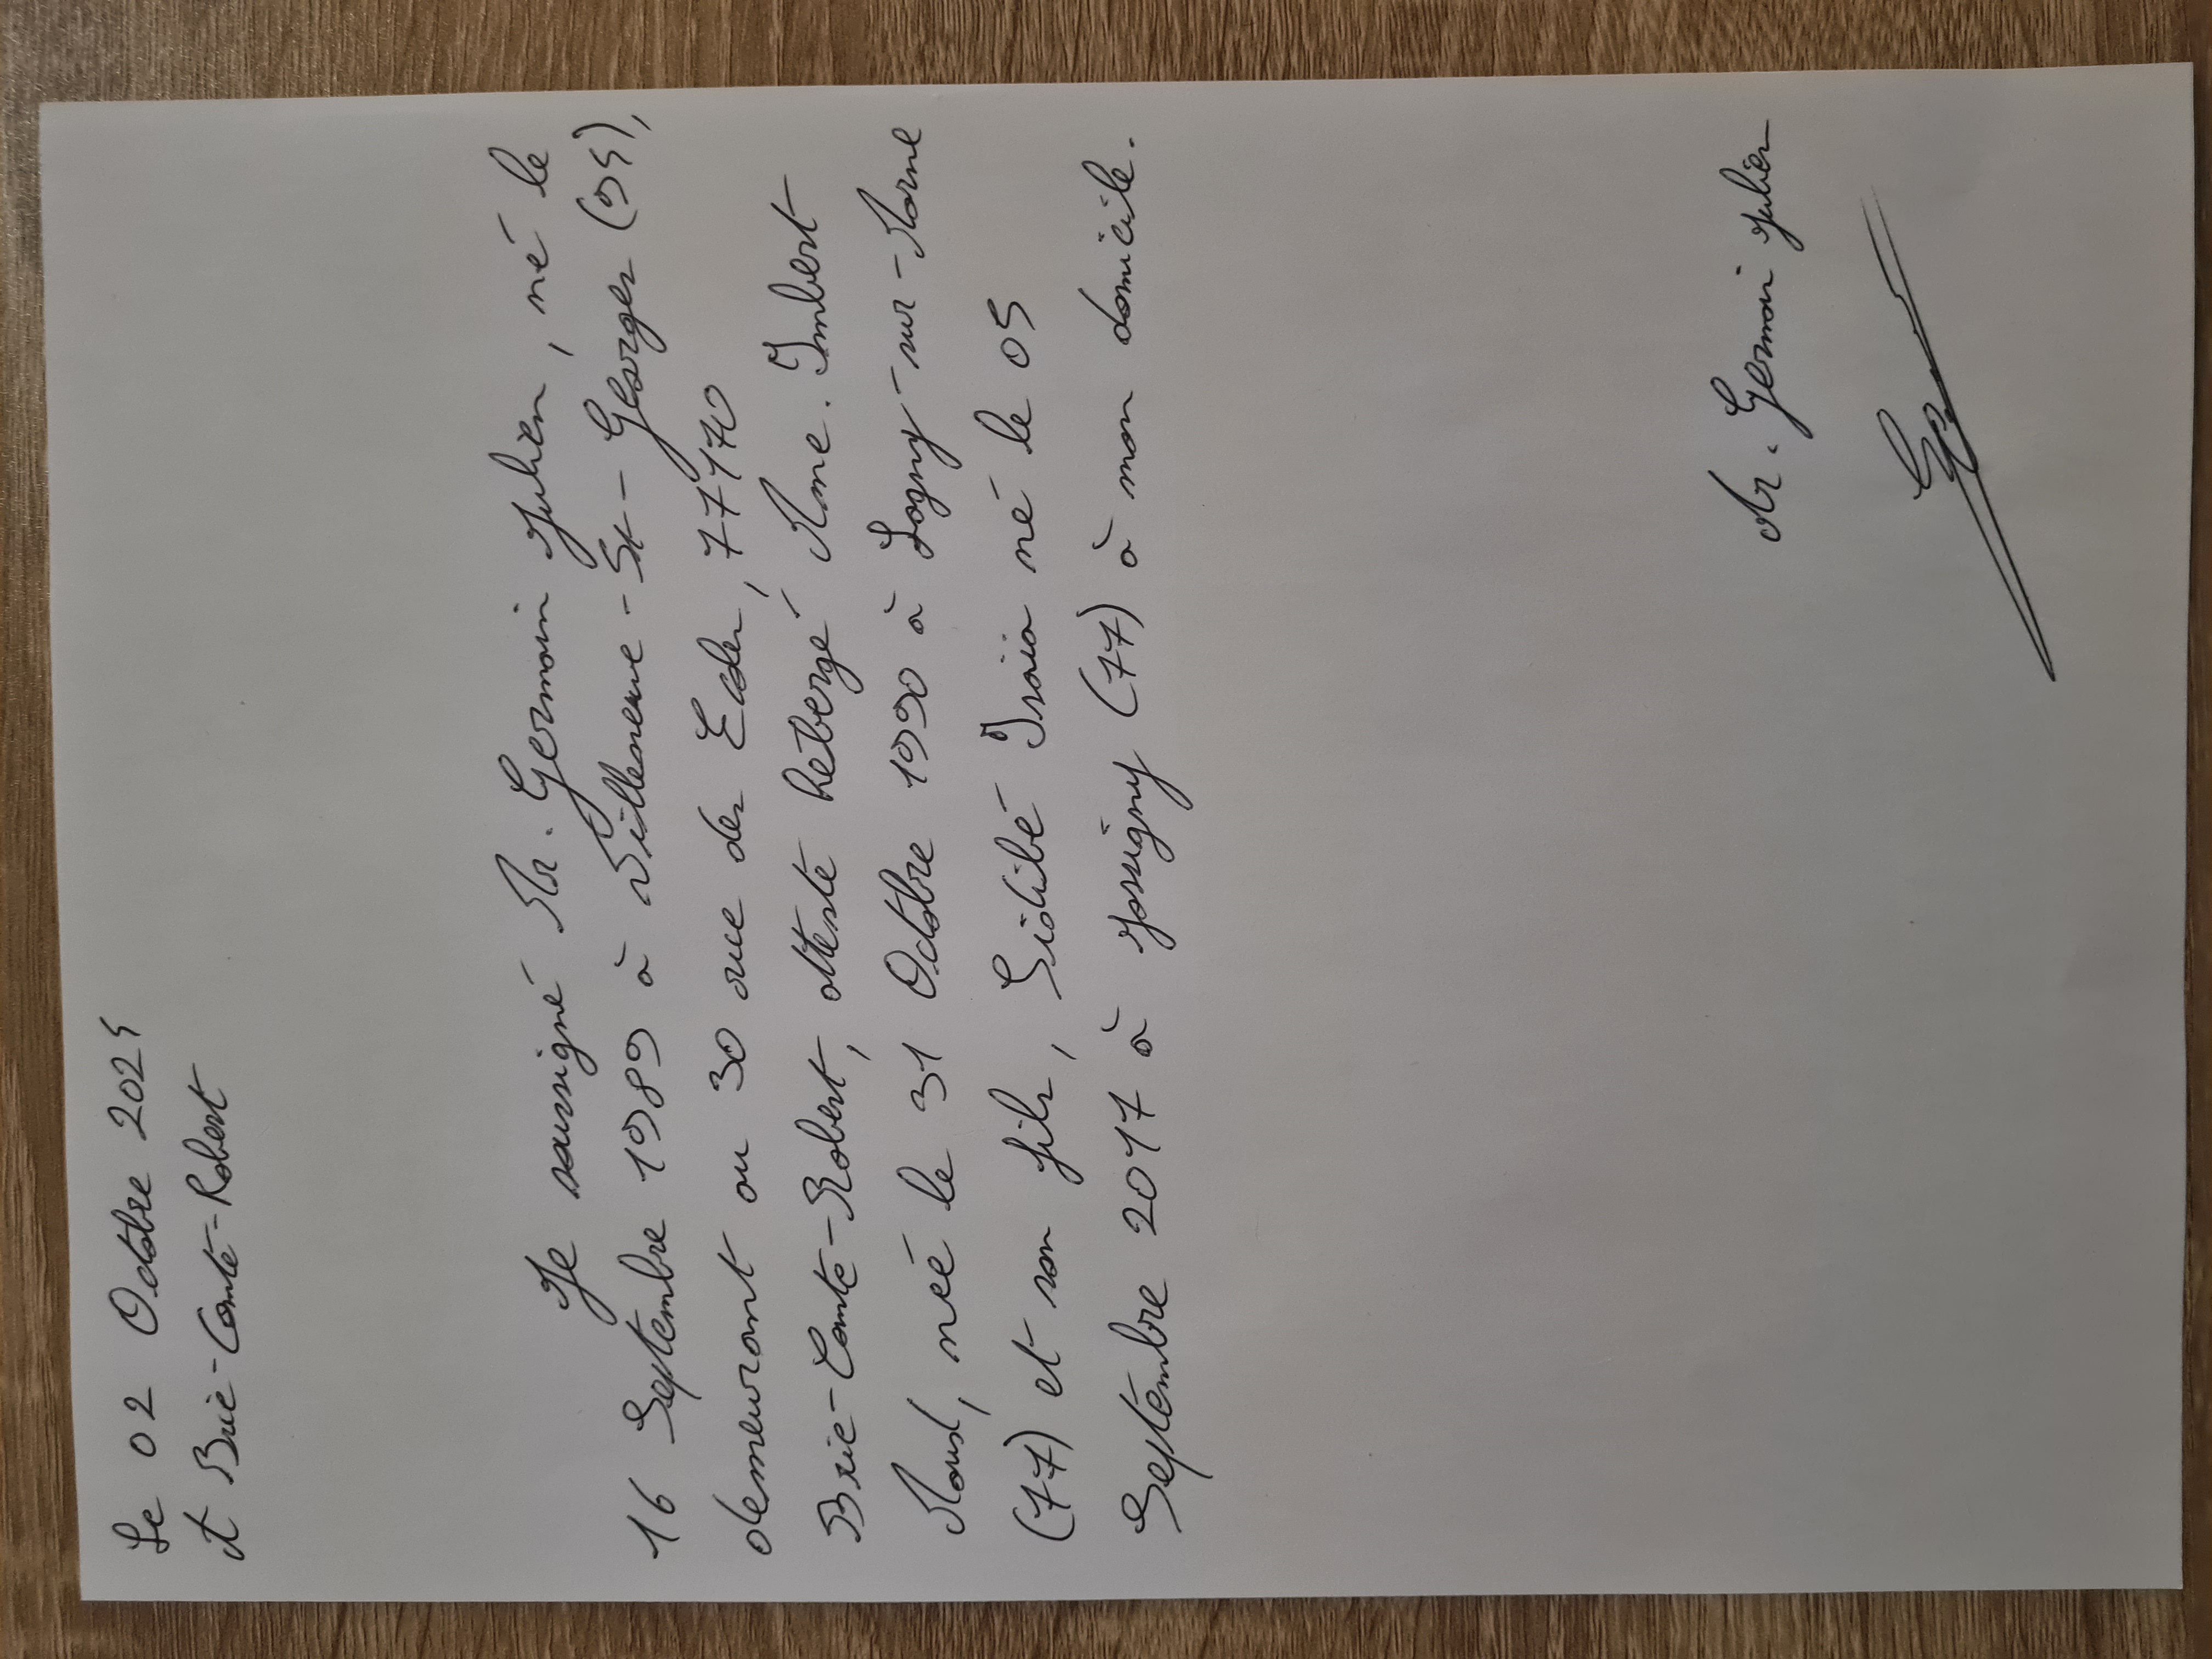 Le 02 Octobre 2024
A Brie-Comte-Robert
Je soussigné Mr. Germain Julien, né le
16 Septembre 1989 à Villeneuve-St-Georges (94),
demeurant au 30 rue des Ecoles, 77170
Brie-Comte-Robert, atteste hébergé Mme. Imbert
Maud, née le 31 Octobre 1990 à Lagny-sur-Marne
(77) et son fils, Isaia né le 05
Septembre 2017 à Jossigny (77) à mon domicile.
Mr. Germain Julien